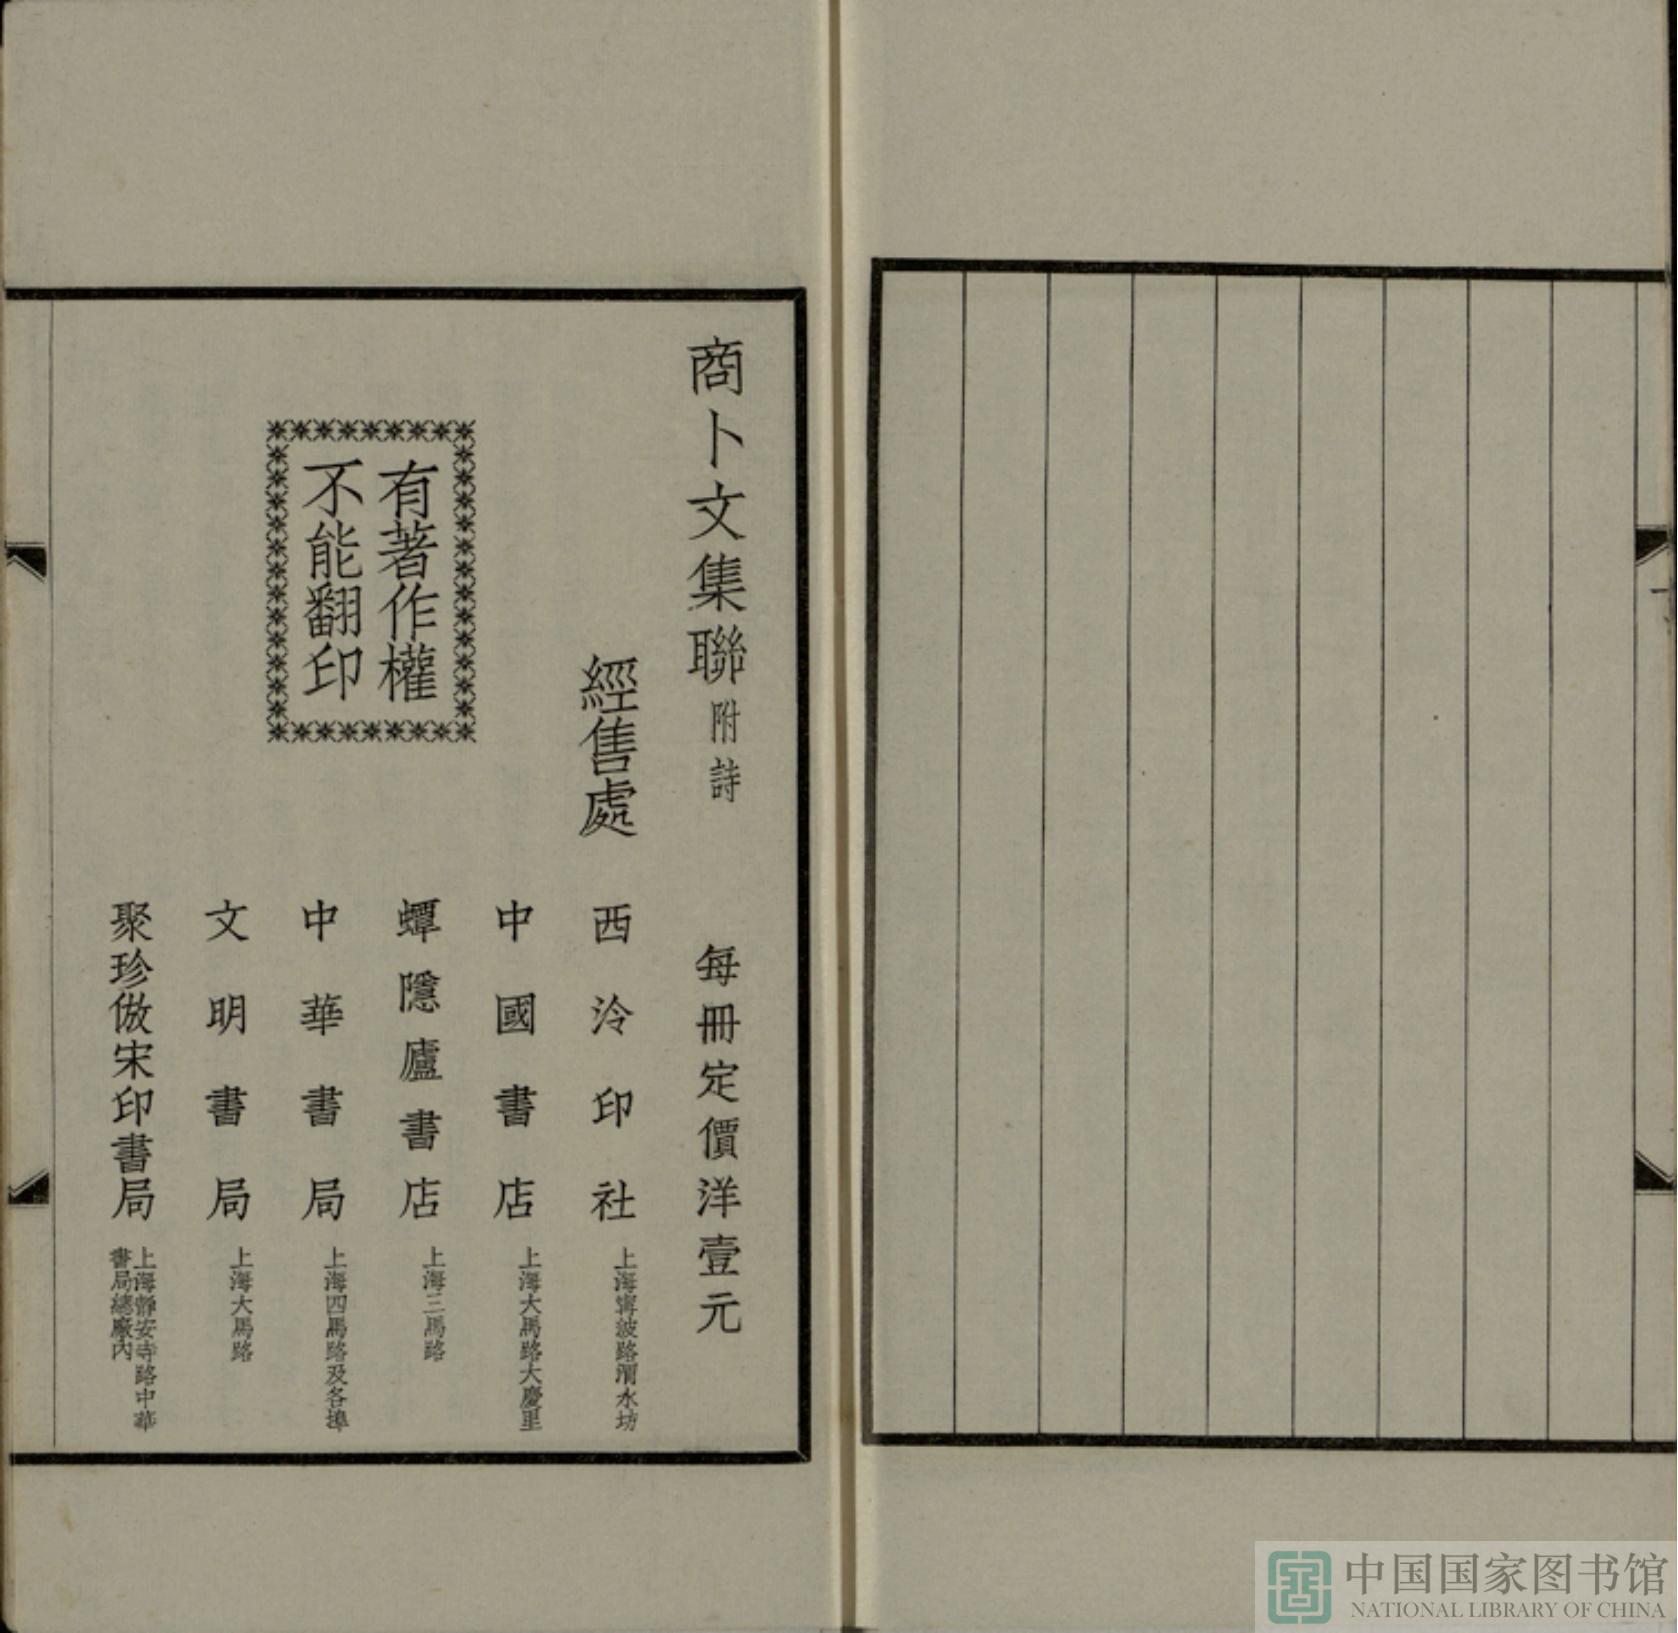 商卜文集聯附詩
每冊定價洋壹元
經售處
西泠印社
上海寗波路渭水坊
中國書店
上海大馬路大慶里
有著作權
不能翻印
蟫隱廬書店
上海三馬路
中華書局
上海四馬路及各埠
文明書局
上海大馬路
聚珍倣宋印書局
上海靜安寺路中華
書局總廠內
中国国家图书馆
NATIONAL LIBRARY OF CHINA